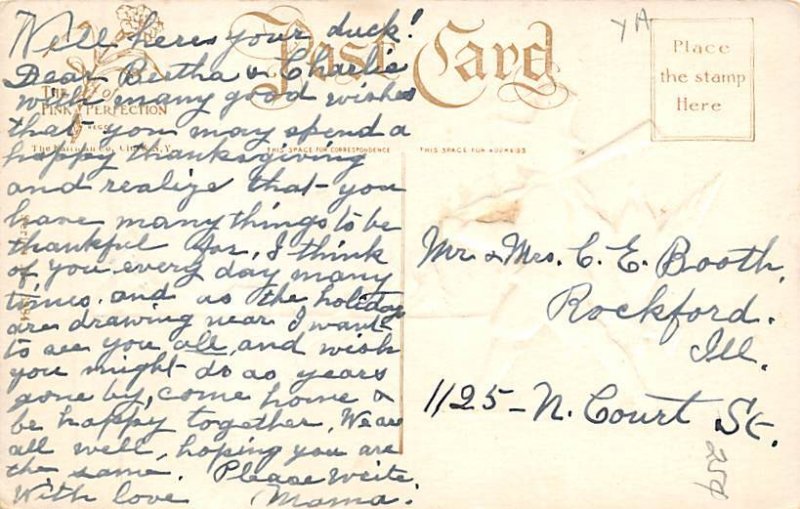 Well heres your duck!
Dear Bertha & Charlie
with many good wishes
that you may spend a
happy thanksgiving
and realize that you
have many things to be
thankful for, I think
of you every day many
times. and as the holidays
are drawing near I want
to see you all, and wish
you might do as years
gone by, come home &
be happy together, We are
all well, hoping you are
the same. Please write.
With love Mama.
Post Card
THE
PINK OF PERFECTION
THIS SPACE FOR CORRESPONDENCE
THIS SPACE FOR ADDRESS
Place
the stamp
Here
YA
Mr. & Mrs. C. E. Booth,
Rockford.
Ill.
1125 - N. Court St.